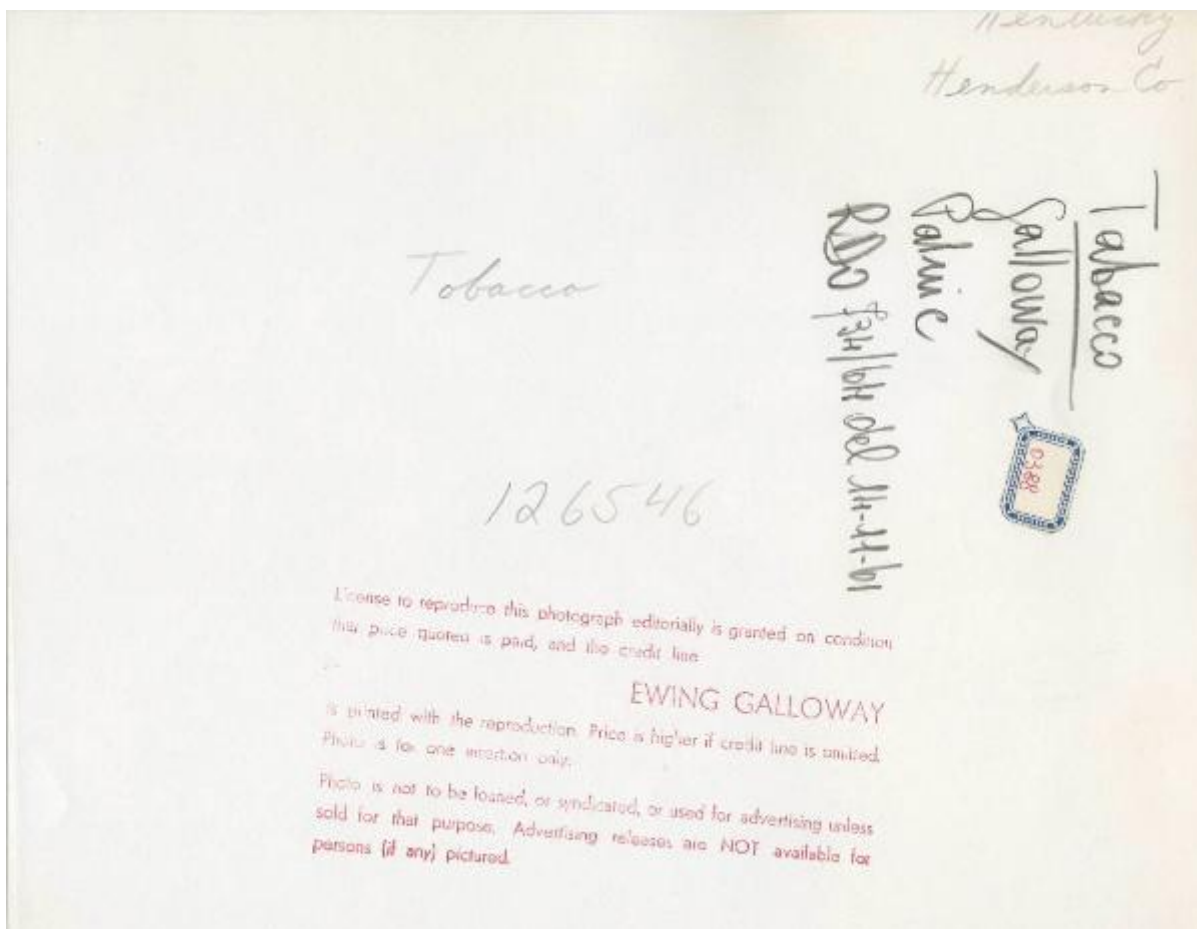 Kentucky
Henderson Co
Tabacco
Galloway
Tobacco
126546
License to reproduce this photograph editorially is granted on condition
that price quoted is paid, and the credit line
EWING GALLOWAY
is printed with the reproduction. Price is higher if credit line is omitted.
Photo is for one insertion only.
Photo is not to be loaned, or syndicated, or used for advertising unless
sold for that purpose. Advertising releases are NOT available for
persons (if any) pictured.